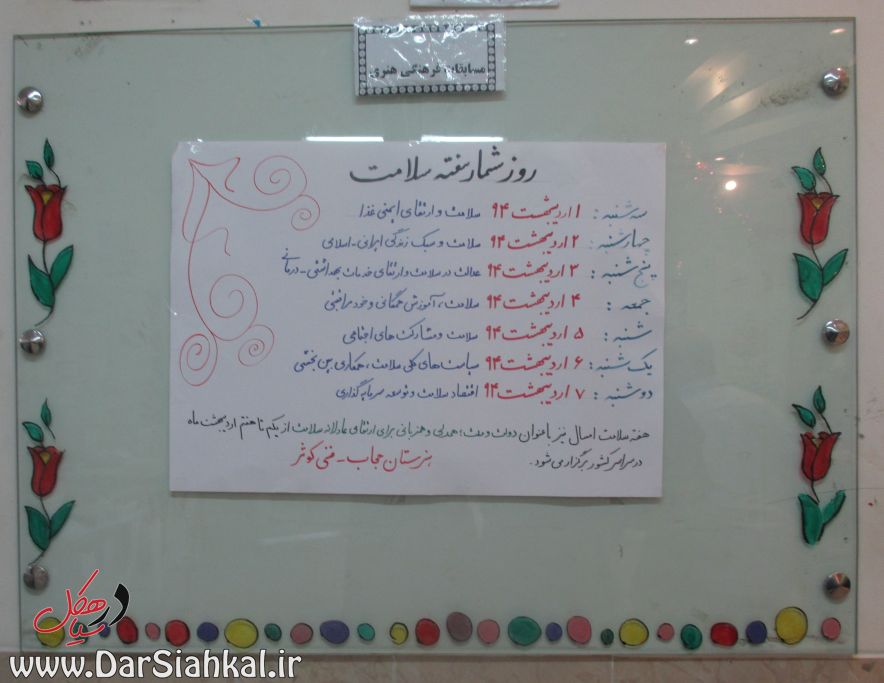 مسابقات فرهنگی هنری
روز شمار هفته سلامت
سه شنبه : ۱ اردیبهشت ۹۴ سلامت و ارتقای ایمنی غذا
چهارشنبه : ۲ اردیبهشت ۹۴ سلامت و سبک زندگی ایرانی - اسلامی
پنج شنبه : ۳ اردیبهشت ۹۴ عدالت در سلامت و ارتقای خدمات بهداشتی - درمانی
جمعه : ۴ اردیبهشت ۹۴ سلامت، آموزش همگانی و خودمراقبتی
شنبه : ۵ اردیبهشت ۹۴ سلامت و مشارکت های اجتماعی
یک شنبه : ۶ اردیبهشت ۹۴ سیاست های کلی سلامت، همکاری بین بخشی
دوشنبه : ۷ اردیبهشت ۹۴ اقتصاد سلامت و توسعه سرمایه گذاری
هفته سلامت امسال نیز با عنوان دولت و ملت، همدلی و همزبانی برای ارتقای عادلانه سلامت از یکم تا هفتم اردیبهشت ماه
در سراسر کشور برگزار می شود.
هنرستان حجاب - فنی کوثر
در سیاهکل
www.DarSiahkal.ir